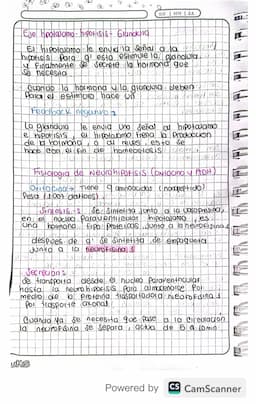 Eje hipotálamo-hipófisis-Glándula
El hipotálamo le envía la señal a la
hipófisis para q' esta estimule la glándula
y Finalmente se secrete la hormona que
se necesita
Cuando la hormona y la glándula deben
parar el estímulo hace un
Feedback negativo:
La glándula le envía una señal al hipotálamo
e hipófisis, el hipotálamo frena la producción
de la hormona, o al revés, esto se
hace con el fin de homeostasis
Fisiología de Neurohipófisis (oxitocina y ADH)
Oxitocina: Tiene 9 aminoácidos (nonapéptido)
Pesa (1007 daltons)
Síntesis: Se sintetiza junto a la vasopresina,
en el núcleo Paraventricular hipotálamo, es
una hormona tipo proteica, junto a la neurofisina
después de q' se sintetiza se empaqueta
junto a la neurofisina
Secreción:
Se transporta desde el núcleo Paraventricular
hasta la neurohipófisis para almacenarse por
medio de la proteína transportadora neurofisina
por trasporte axonal
Cuando ya se necesita que pase a la circulación
la neurofisina se separa, actúa de
Powered by CS CamScanner